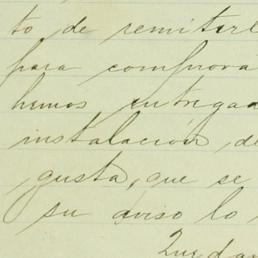 to de remitirl
para comprova
hemos entregad
instalación, de
gusta, que se
su aviso lo
Quedan